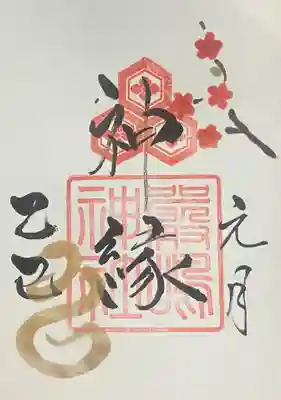 元月
神縁
嚴嶋
神社
乙巳